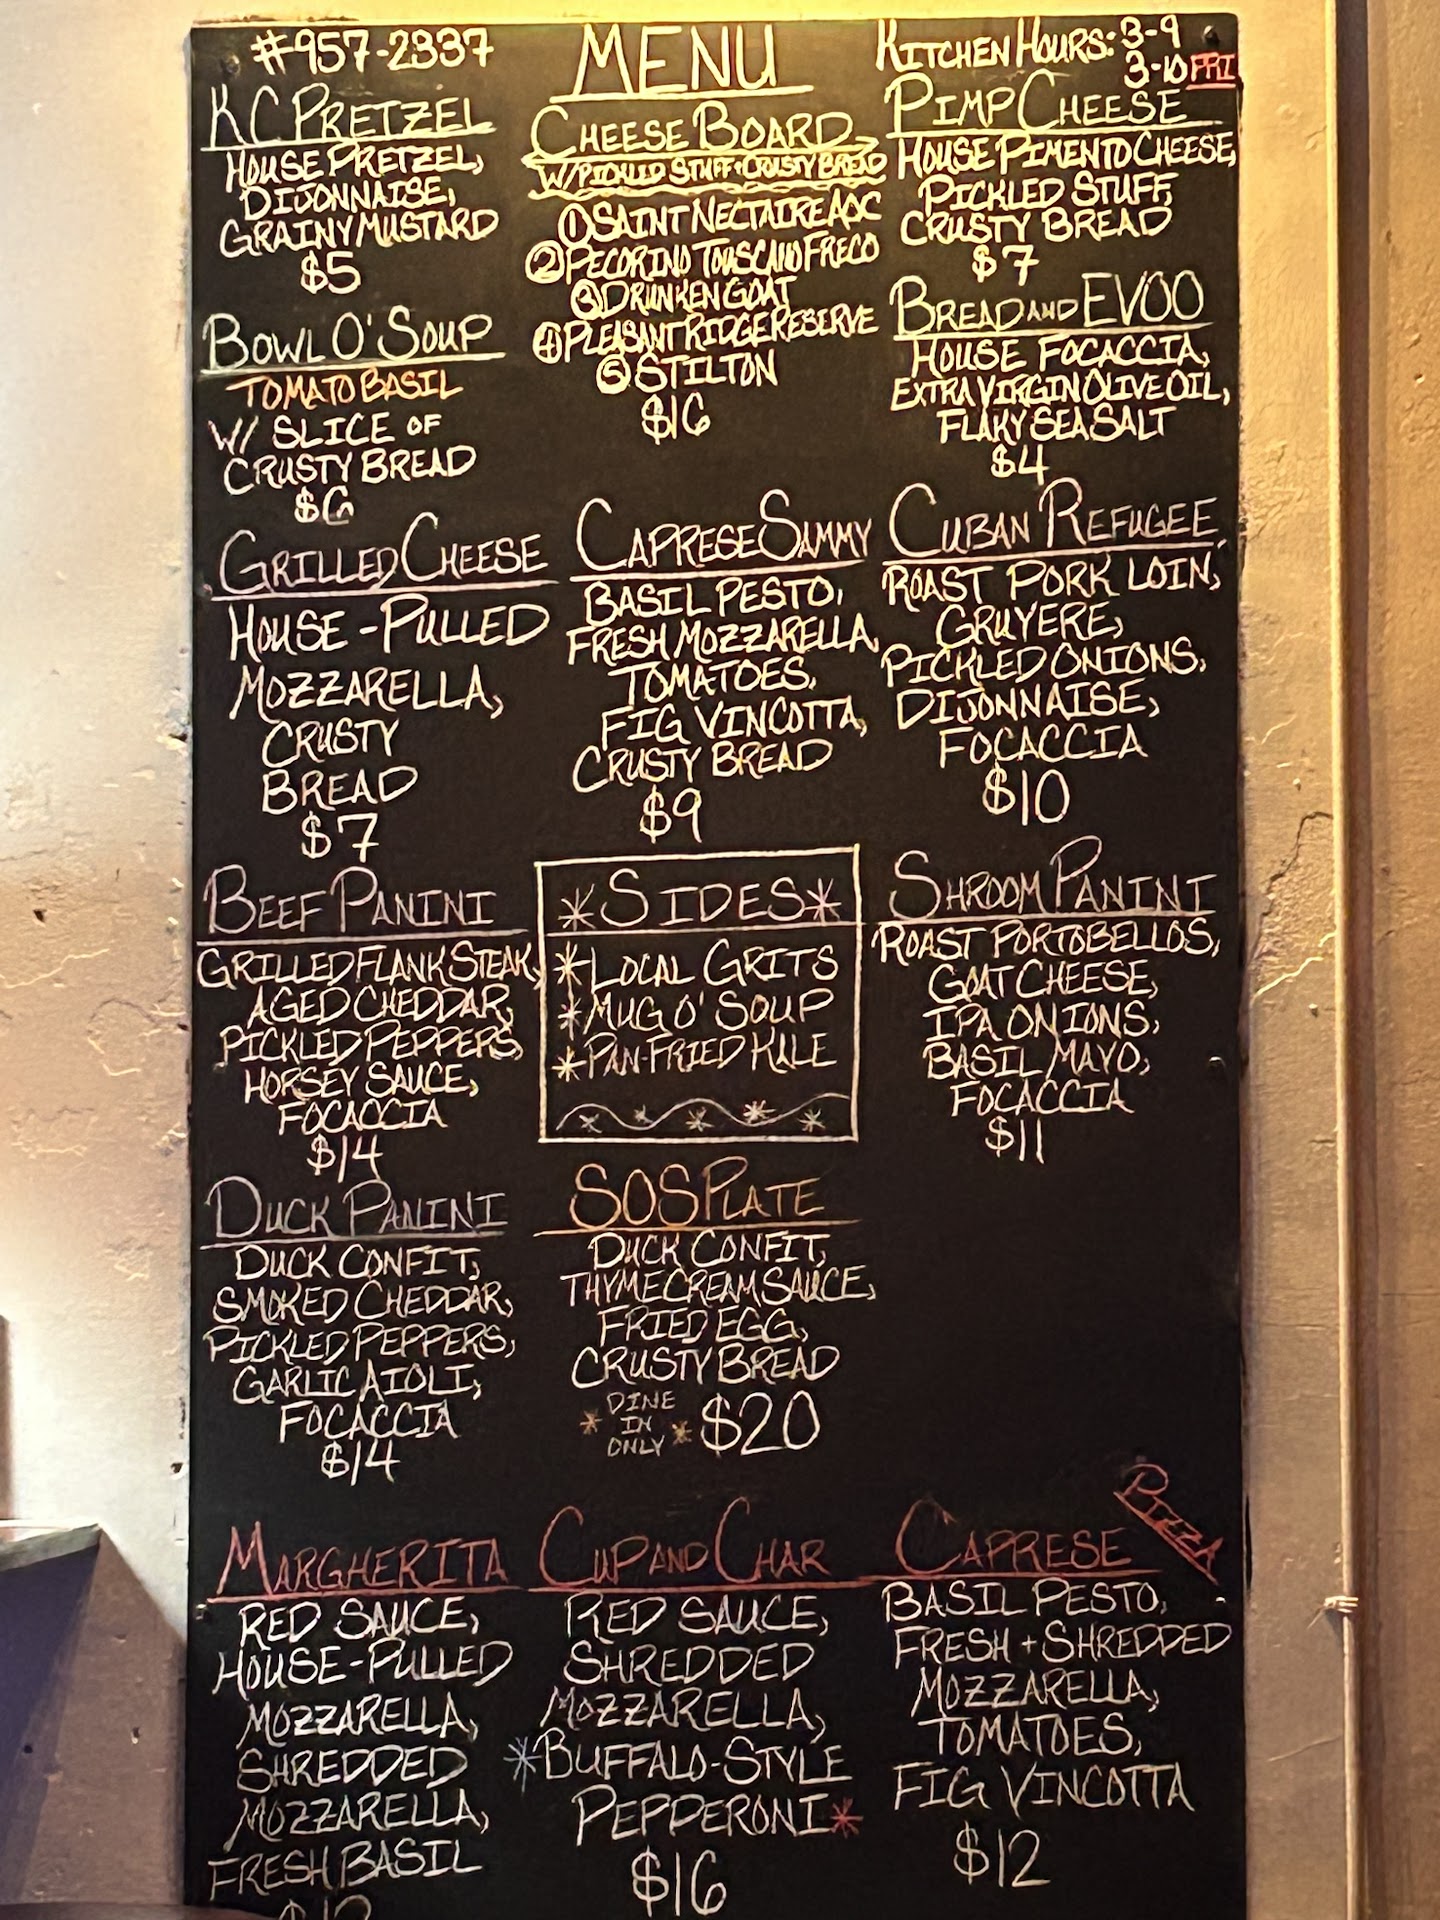 #957-2337
MENU
KITCHEN HOURS: 3-9
3-10 FRI
KC PRETZEL
HOUSE PRETZEL,
DIJONNAISE,
GRAINY MUSTARD
$5
CHEESE BOARD
W/PICKLED STUFF + CRUSTY BREAD
① SAINT NECTAIRE AOC
② PECORINO TOUSCANO FRECO
③ DRUNKEN GOAT
④ PLEASANT RIDGE RESERVE
⑤ STILTON
$16
PIMP CHEESE
HOUSE PIMENTO CHEESE,
PICKLED STUFF,
CRUSTY BREAD
$7
BOWL O' SOUP
TOMATO BASIL
W/ SLICE OF
CRUSTY BREAD
$6
BREAD AND EVOO
HOUSE FOCACCIA,
EXTRA VIRGIN OLIVE OIL,
FLAKY SEA SALT
$4
GRILLED CHEESE
HOUSE-PULLED
MOZZARELLA,
CRUSTY
BREAD
$7
CAPRESE SAMMY
BASIL PESTO,
FRESH MOZZARELLA,
TOMATOES,
FIG VINCOTTA,
CRUSTY BREAD
$9
CUBAN REFUGEE
ROAST PORK LOIN,
GRUYERE,
PICKLED ONIONS,
DIJONNAISE,
FOCACCIA
$10
BEEF PANINI
GRILLED FLANK STEAK,
AGED CHEDDAR,
PICKLED PEPPERS,
HORSEY SAUCE,
FOCACCIA
$14
*SIDES*
*LOCAL GRITS
*MUG O' SOUP
*PAN-FRIED KALE
SHROOM PANINI
ROAST PORTOBELLOS,
GOAT CHEESE,
IPA ONIONS,
BASIL MAYO,
FOCACCIA
$11
DUCK PANINI
DUCK CONFIT,
SMOKED CHEDDAR,
PICKLED PEPPERS,
GARLIC AIOLI,
FOCACCIA
$14
SOS PLATE
DUCK CONFIT,
THYME CREAM SAUCE,
FRIED EGG,
CRUSTY BREAD
*DINE
IN
ONLY* $20
PIZZA
MARGHERITA
RED SAUCE,
HOUSE-PULLED
MOZZARELLA,
SHREDDED
MOZZARELLA,
FRESH BASIL
$12
CUP AND CHAR
RED SAUCE,
SHREDDED
MOZZARELLA,
*BUFFALO-STYLE
PEPPERONI*
$16
CAPRESE
BASIL PESTO,
FRESH + SHREDDED
MOZZARELLA,
TOMATOES,
FIG VINCOTTA
$12